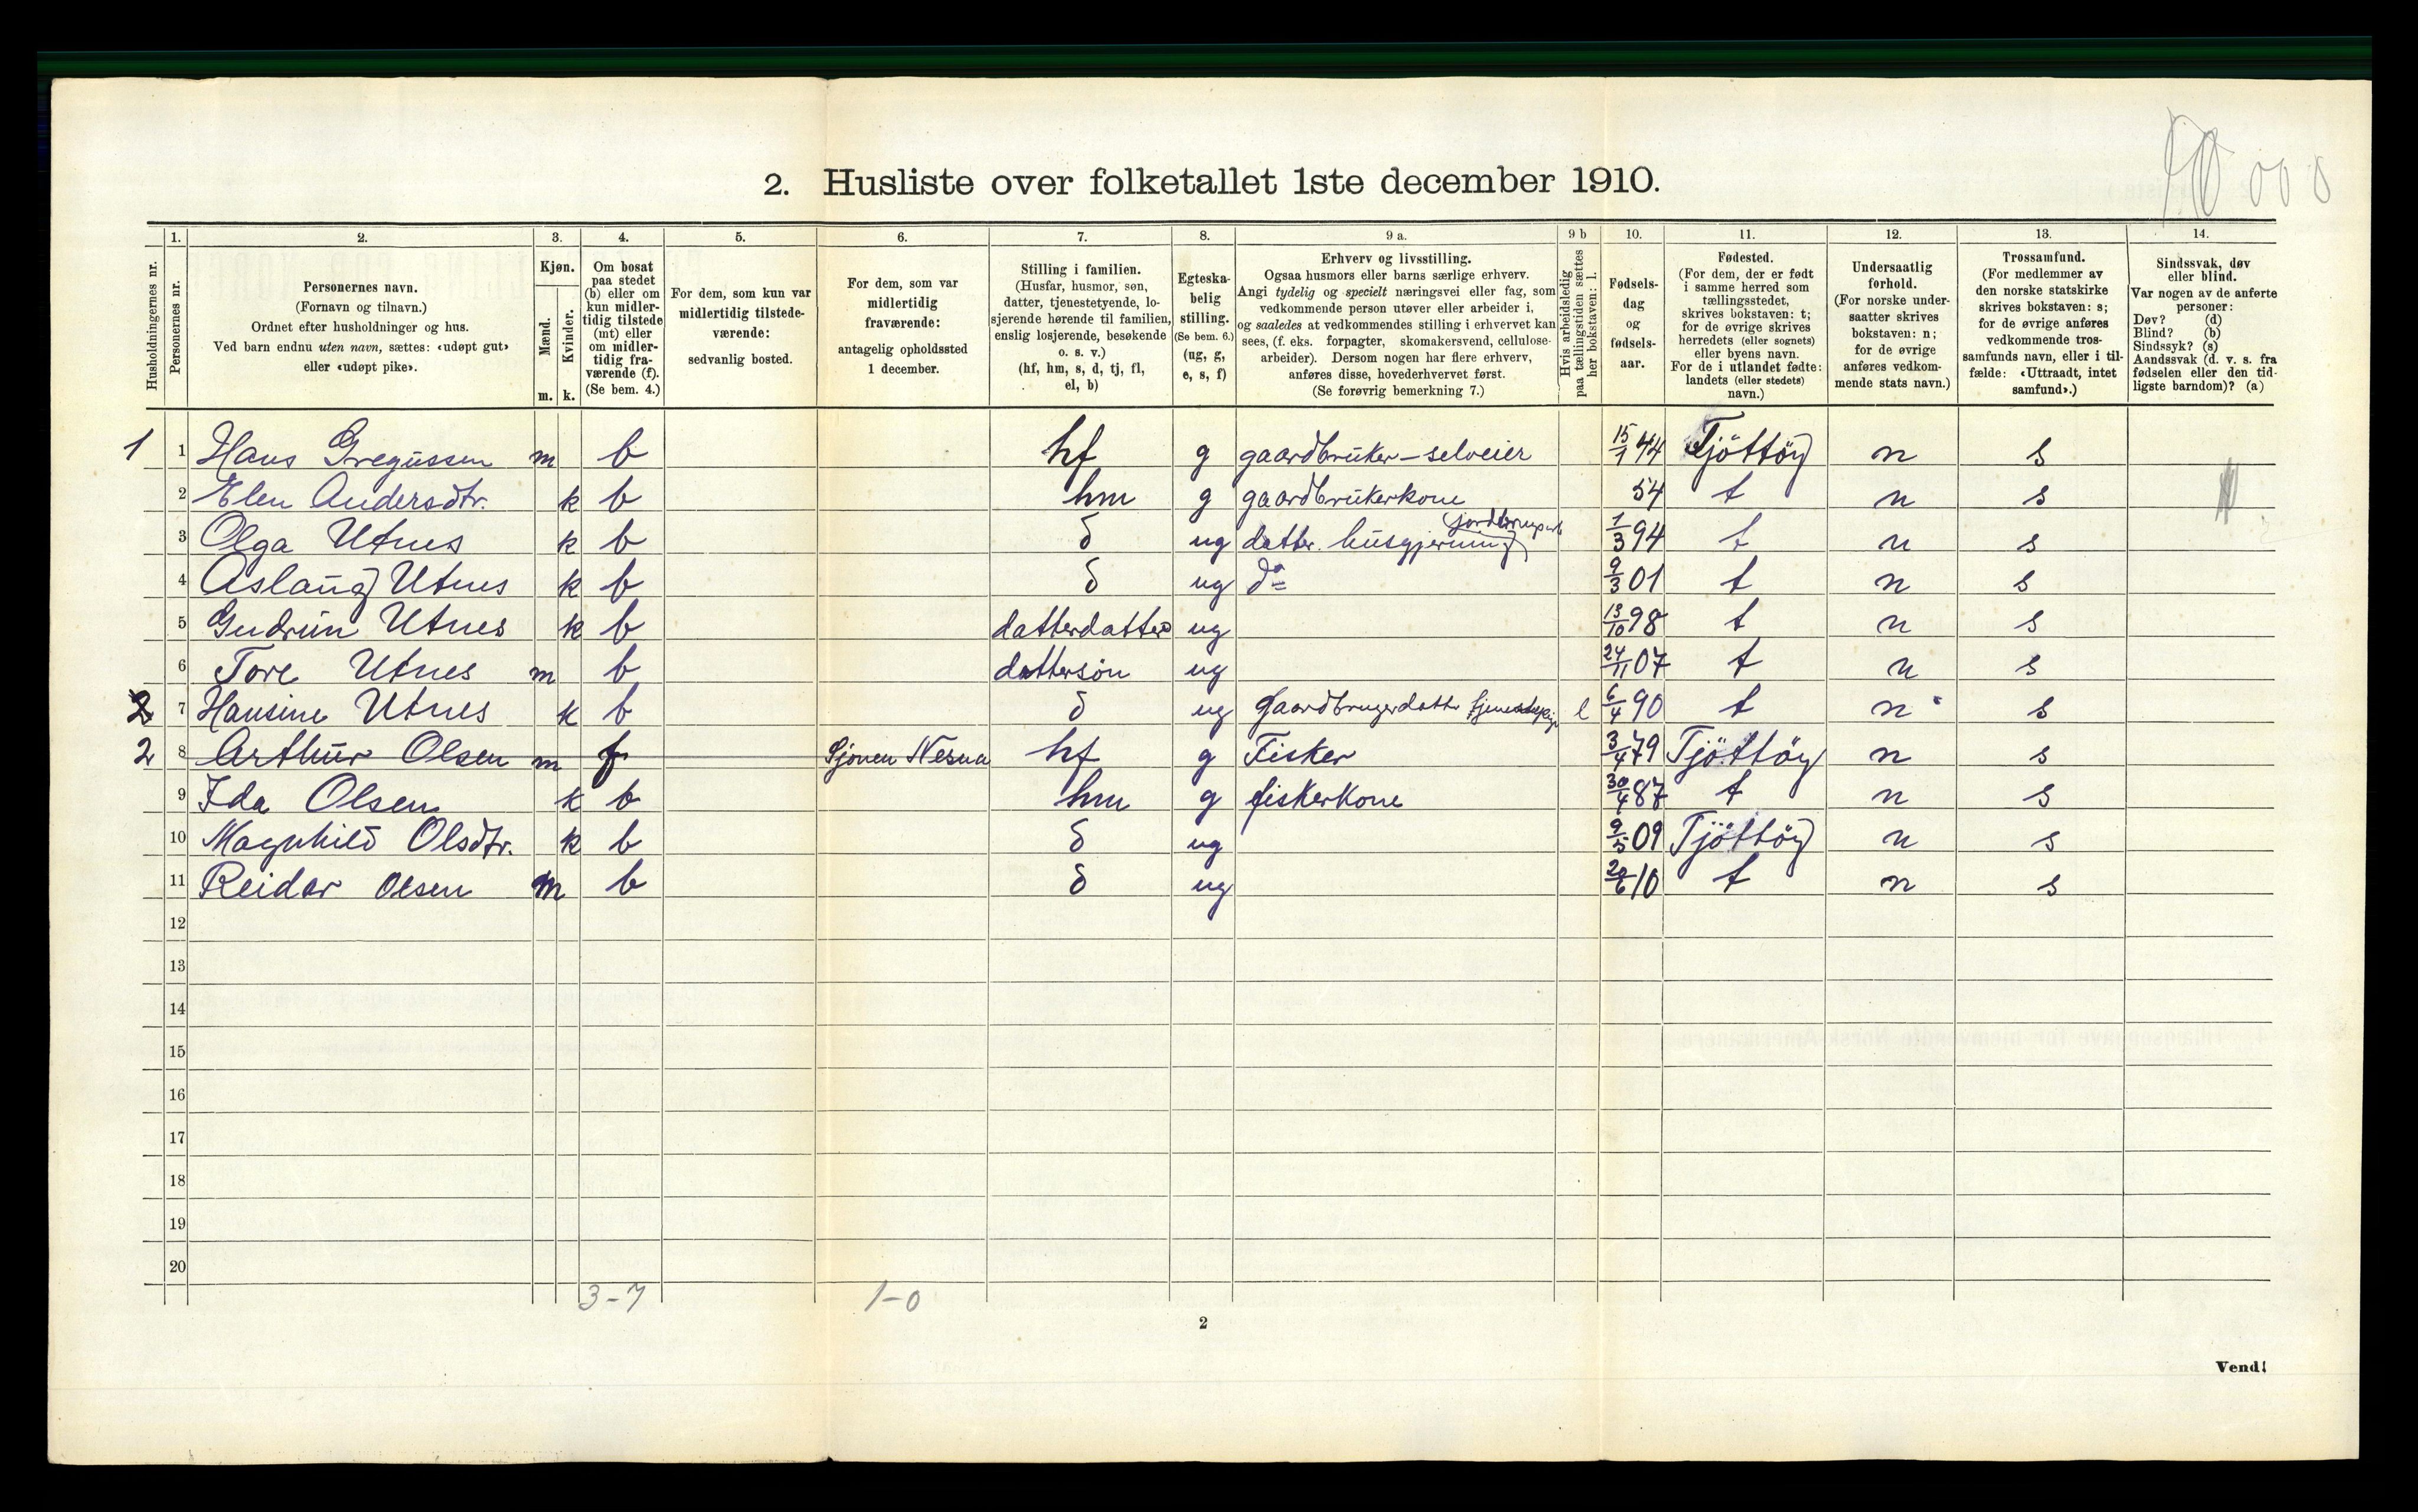 2. Husliste over folketallet 1ste december 1910.
Husholdningernes nr.
1.
Personernes nr.
2.
Personernes navn.
(Fornavn og tilnavn.)
Ordnet efter husholdninger og hus.
Ved barn endnu uten navn, sættes: «udøpt gut»
eller «udøpt pike».
3.
Kjøn.
Mænd.
Kvinder.
m. k.
4.
Om bosat
paa stedet
(b) eller om
kun midler-
tidig tilstede
(mt) eller
om midler-
tidig fra-
værende (f).
(Se bem. 4.)
5.
For dem, som kun var
midlertidig tilstede-
værende:
sedvanlig bosted.
6.
For dem, som var
midlertidig
fraværende:
antagelig opholdssted
1 december.
7.
Stilling i familien.
(Husfar, husmor, søn,
datter, tjenestetyende, lo-
sjerende hørende til familien,
enslig losjerende, besøkende
o. s. v.)
(hf, hm, s, d, tj, fl,
el, b)
8.
Egteska-
belig
stilling.
(Se bem. 6.)
(ug, g,
e, s, f)
9 a.
Erhverv og livsstilling.
Ogsaa husmors eller barns særlige erhverv.
Angi tydelig og specielt næringsvei eller fag, som
vedkommende person utøver eller arbeider i,
og saaledes at vedkommendes stilling i erhvervet kan
sees, (f. eks. forpagter, skomakersvend, cellulose-
arbeider). Dersom nogen har flere erhverv,
anføres disse, hovederhvervet først.
(Se forøvrig bemerkning 7.)
9 b
Hvis arbeidsledig
paa tællingstiden sættes
her bokstaven: l.
10.
Fødsels-
dag
og
fødsels-
aar.
11.
Fødested.
(For dem, der er født
i samme herred som
tællingsstedet,
skrives bokstaven: t;
for de øvrige skrives
herredets (eller sognets)
eller byens navn.
For de i utlandet fødte:
landets (eller stedets)
navn.)
12.
Undersaatlig
forhold.
(For norske under-
saatter skrives
bokstaven: n;
for de øvrige
anføres vedkom-
mende stats navn.)
13.
Trossamfund.
(For medlemmer av
den norske statskirke
skrives bokstaven: s;
for de øvrige anføres
vedkommende tros-
samfunds navn, eller i til-
fælde: «Uttraadt, intet
samfund».)
14.
Sindssvak, døv
eller blind.
Var nogen av de anførte
personer:
Døv? (d)
Blind? (b)
Sindssyk? (s)
Aandssvak (d. v. s. fra
fødselen eller den tid-
ligste barndom)? (a)
1 1 Hans Gregussen m b hf g gaardbruker – selveier 15/1 44 Tjöttöy n s
2 Elen Andersdtr. k b hm g gaardbrukerkone 54 t n s
3 Olga Utnes k b d ug datter. husgjerning 1/3 94 t n s
4 Aslaug Utnes k b d ug do 9/3 01 t n s
5 Gudrun Utnes k b datterdatter ug 13/10 98 t n s
6 Tore Utnes m b dattersön ug 24/11 07 t n s
7 Hansine Utnes k b d ug Gaardbrugerdatter l 6/4 90 t n s
2 8 Arthur Olsen m f Sjonen Nesna hf g Fisker 3/4 79 Tjöttöy n s
9 Ida Olsen k b hm g fiskerkone 30/4 87 t n s
10 Magnhild Olsdtr. k b d ug 9/5 09 Tjöttöy n s
11 Reidar Olsen m b d ug 20/6 10 t n s
12
13
14
15
16
17
18
19
20
3-7 1-0
2
Vend!